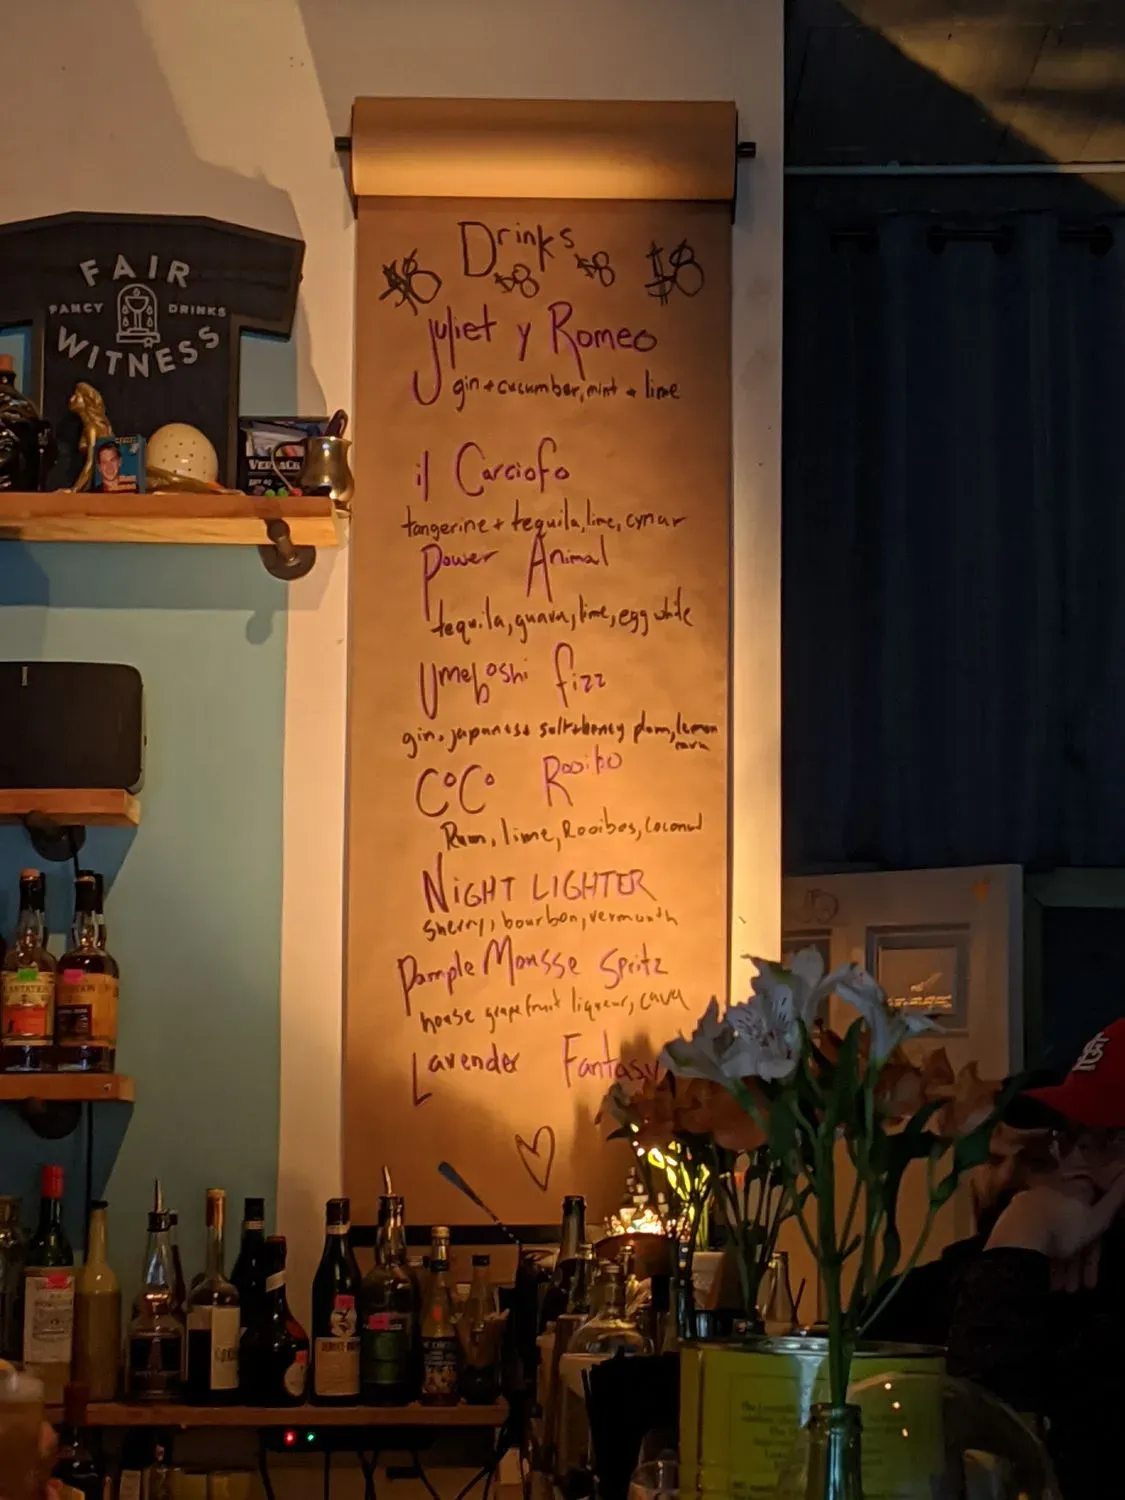 FAIR
FANCY DRINKS
WITNESS
Drinks
$8 $8 $8 $8
Juliet y Romeo
gin + cucumber, mint + lime
il Carciofo
tangerine + tequila, lime, cynar
Power Animal
tequila, guava, lime, egg white
Umeboshi fizz
gin, japanese salt + honey plum, lemon
CoCo Rooibo
Rum, lime, Rooibos, coconut
NIGHT LIGHTER
Sherry, bourbon, vermouth
PampleMousse Spritz
house grapefruit liqueur, cava
Lavender Fantasy